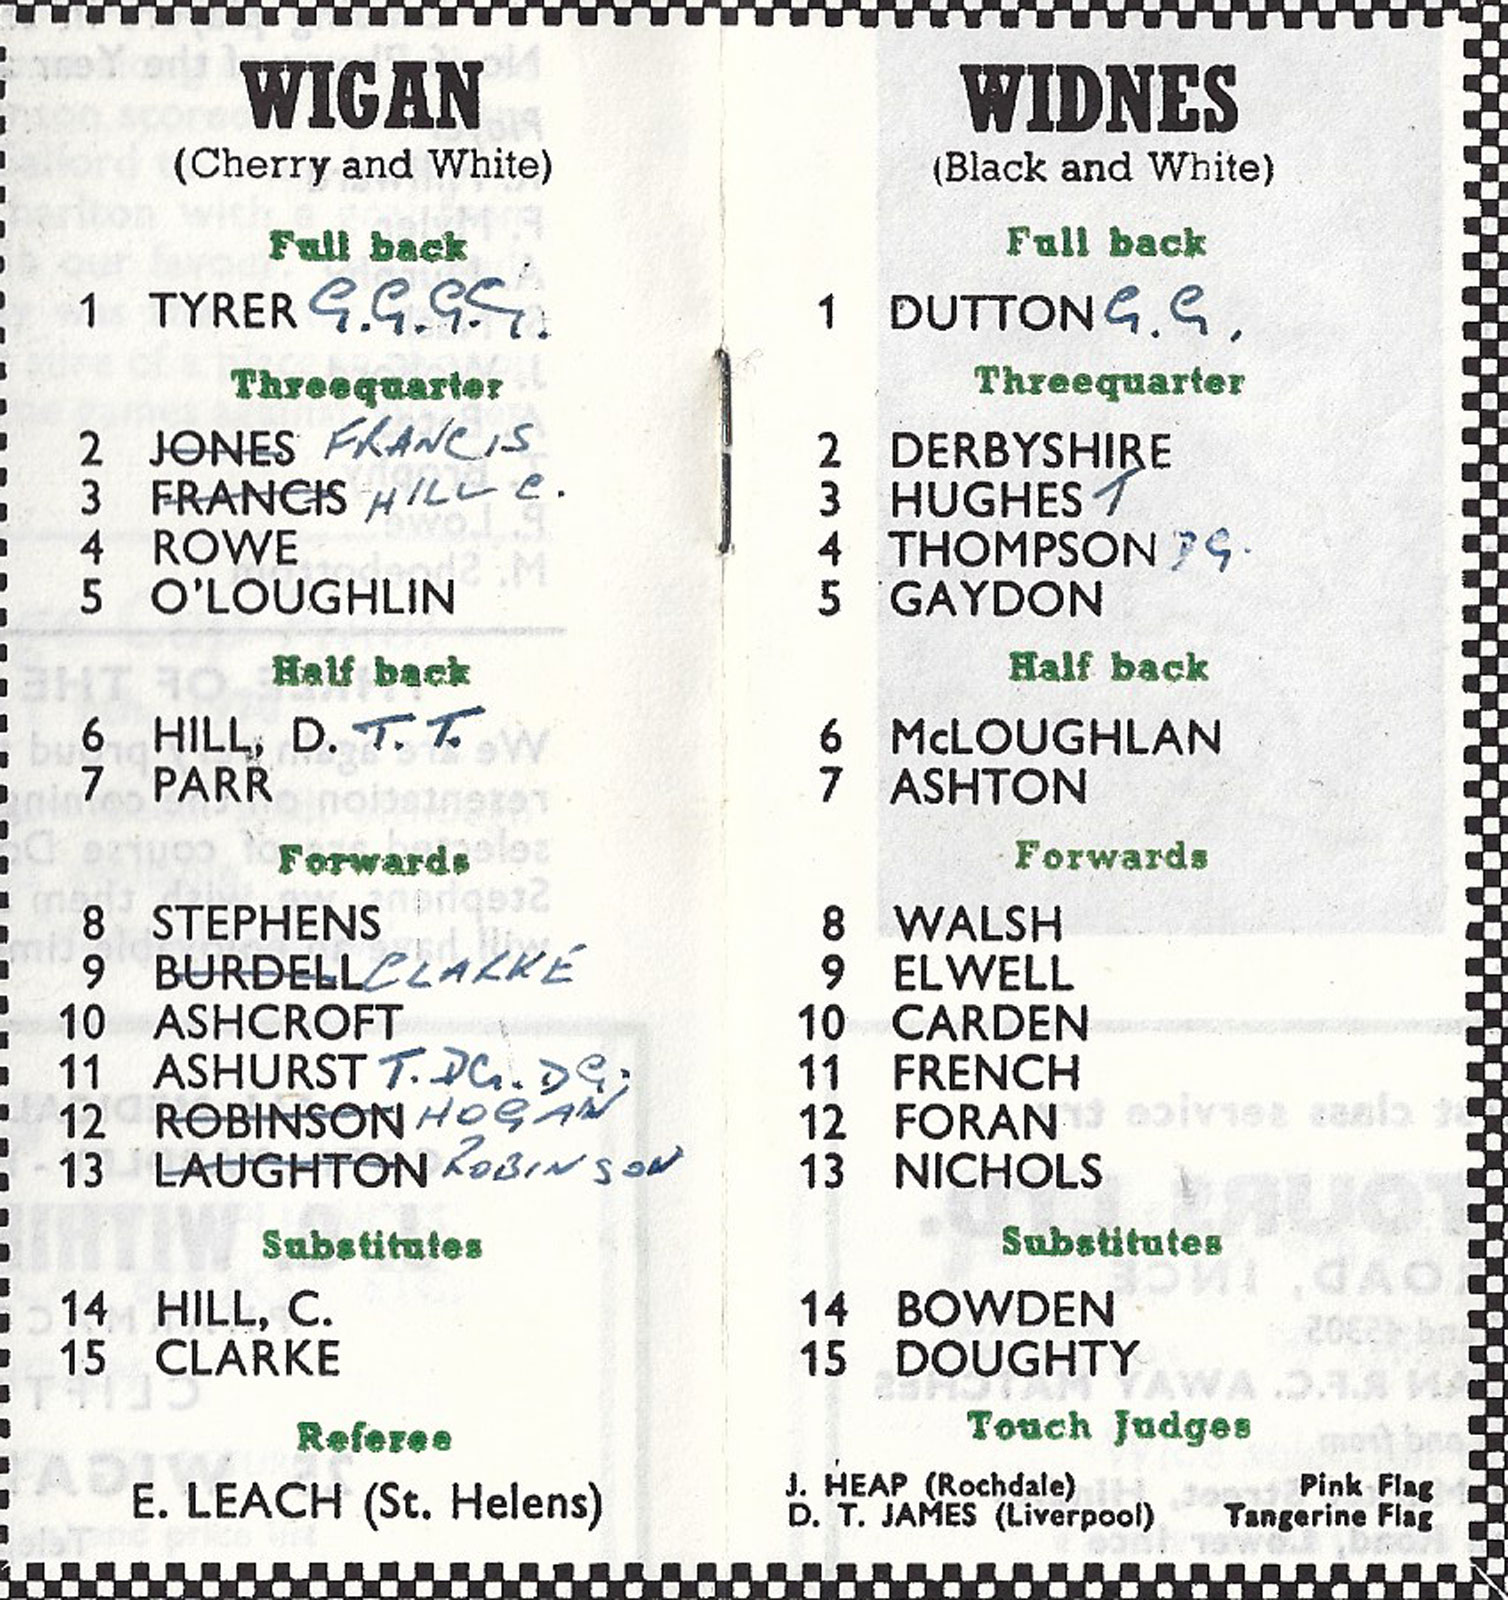 WIGAN
(Cherry and White)
Full back
1 TYRER G.G.G.G.
Threequarter
2 JONES FRANCIS
3 FRANCIS HILL C.
4 ROWE
5 O'LOUGHLIN
Half back
6 HILL, D. T. T.
7 PARR
Forwards
8 STEPHENS
9 BURDELL CLARKE
10 ASHCROFT
11 ASHURST T. DG. DG.
12 ROBINSON HOGAN
13 LAUGHTON ROBINSON
Substitutes
14 HILL, C.
15 CLARKE
Referee
E. LEACH (St. Helens)
WIDNES
(Black and White)
Full back
1 DUTTON G. G.
Threequarter
2 DERBYSHIRE
3 HUGHES T
4 THOMPSON DG.
5 GAYDON
Half back
6 McLOUGHLAN
7 ASHTON
Forwards
8 WALSH
9 ELWELL
10 CARDEN
11 FRENCH
12 FORAN
13 NICHOLS
Substitutes
14 BOWDEN
15 DOUGHTY
Touch Judges
J. HEAP (Rochdale) Pink Flag
D. T. JAMES (Liverpool) Tangerine Flag